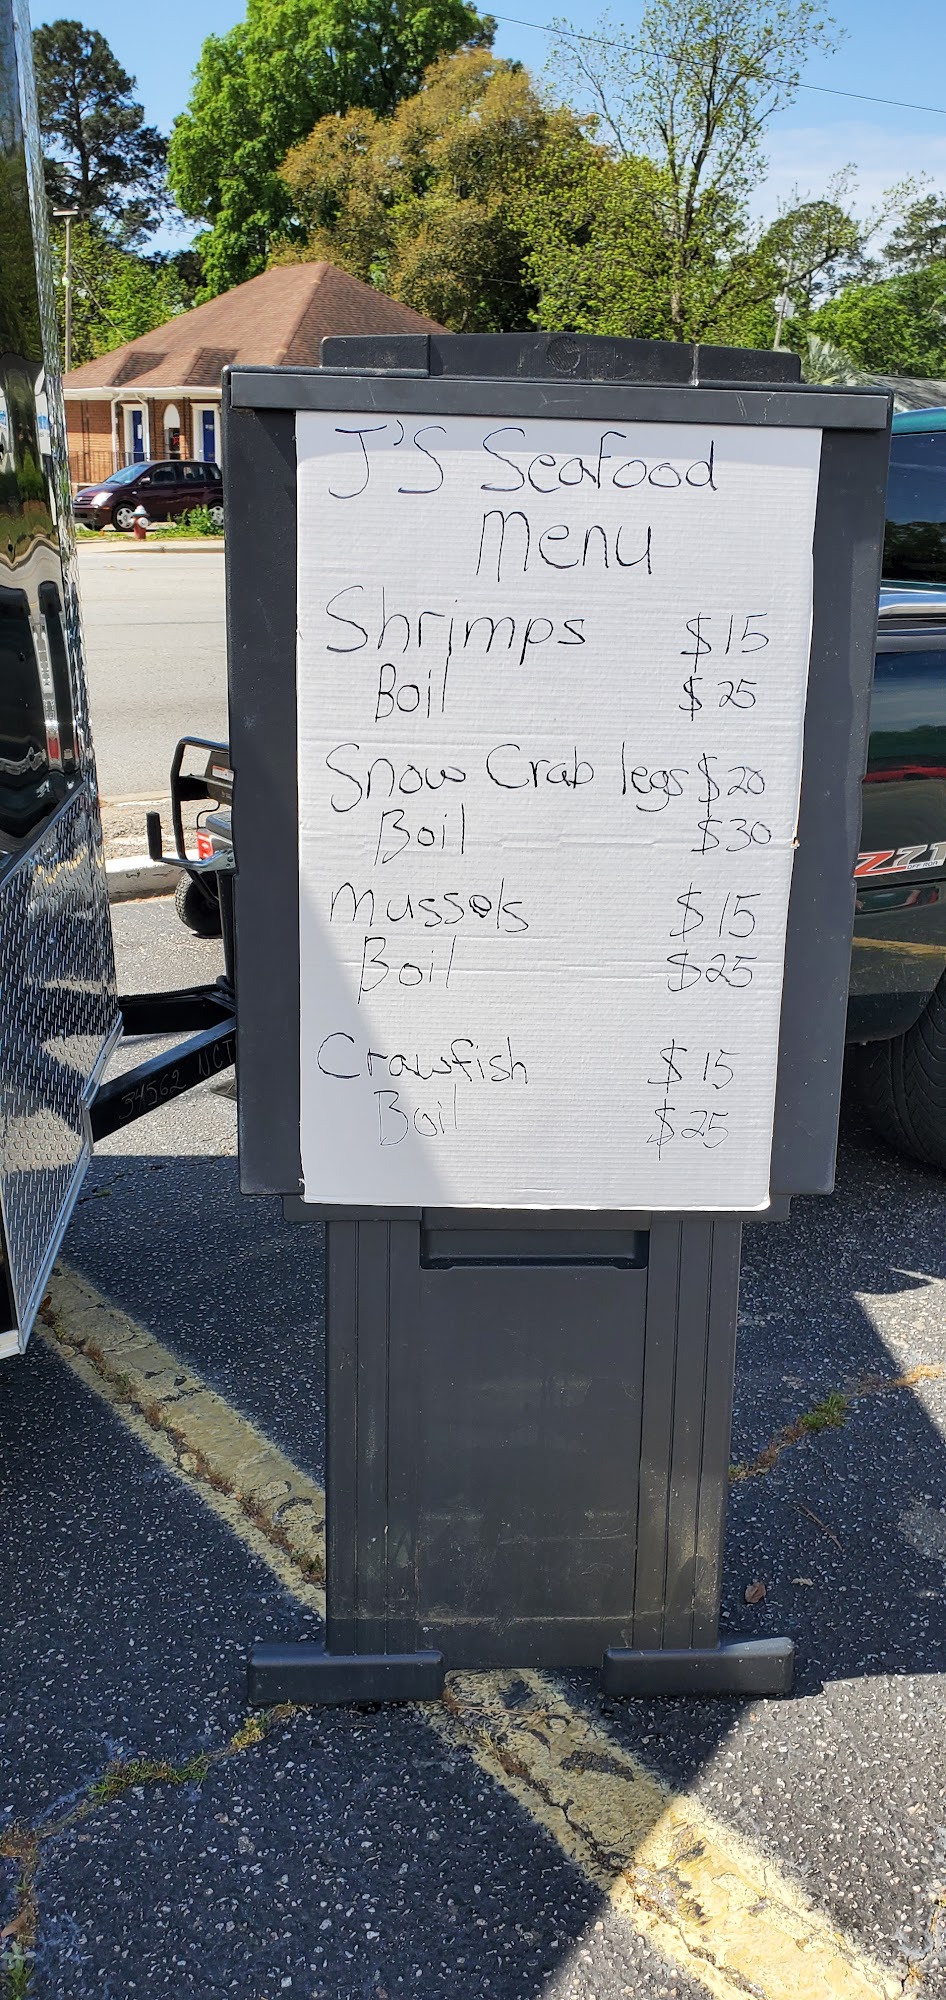 J'S Seafood
Menu
Shrimps $15
Boil $25
Snow Crab legs $20
Boil $30
Mussels $15
Boil $25
Crawfish $15
Boil $25
Z71
OFF ROA
54562 NCT